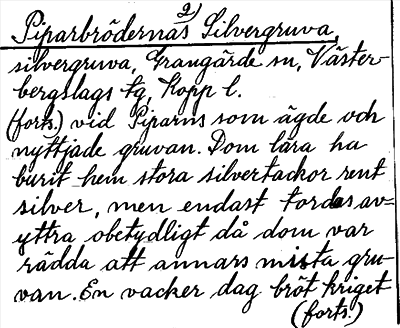 2)
Piparbrödernas Silvergruva,
silvergruva, Grangärde sn, Väster-
bergslags tg, Kopp l.
(forts.) vid Piparns som ägde och
nyttjade gruvan. Dom lära ha
burit hem stora silvertackor rent
silver, men endast tordes av-
yttra obetydligt då dom var
rädda att annars mista gru-
van. En vacker dag bröt kriget
(forts.)